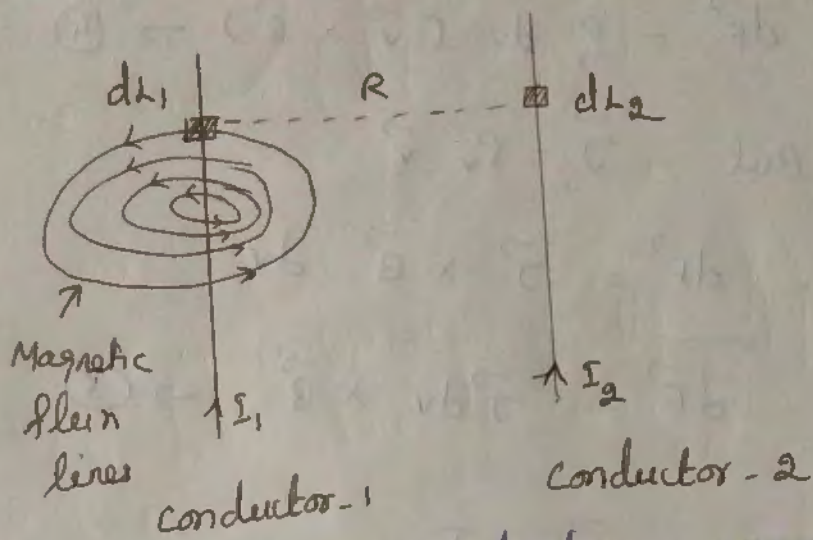 dL₁
R
dL₂
Magnetic
flux
lines
I₁
I₂
conductor-1
conductor-2